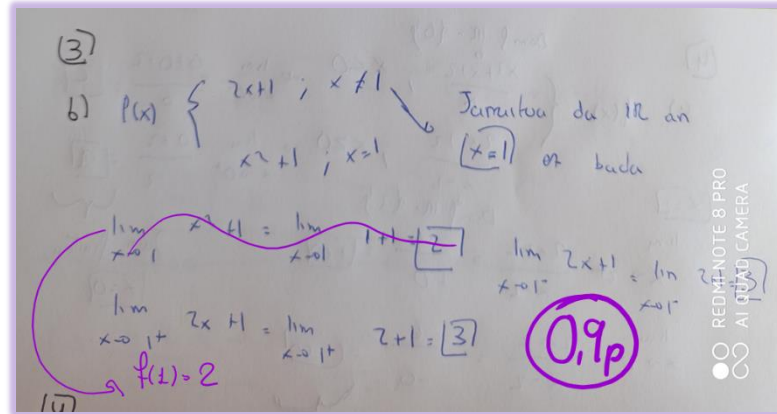 (3)
b) f(x) { 2x+1 ; x≠1
x²+1 ; x=1
Jarraitua da IR an
x=1 ez bada
lim x→1 x²+1 = lim x→1 1+1=2
lim x→1⁻ 2x+1 = lim x→1⁻ 2+1=3
lim x→1⁺ 2x+1 = lim x→1⁺ 2+1=3
f(1)=2
0,9p
(4)
REDMI NOTE 8 PRO
AI QUAD CAMERA